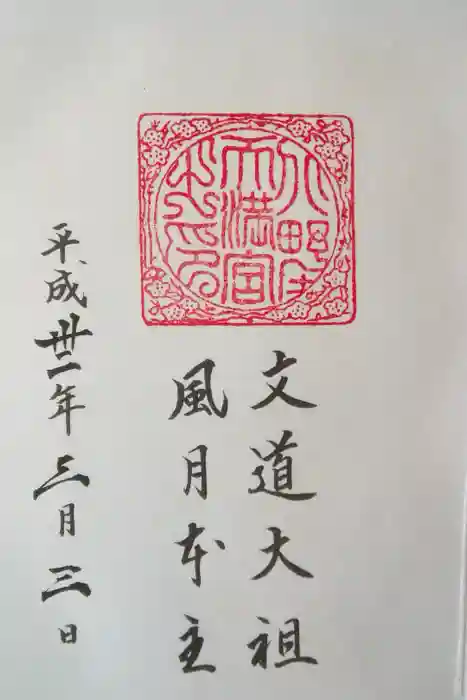 天満宮
文道大祖
風月本主
平成卅一年三月三日